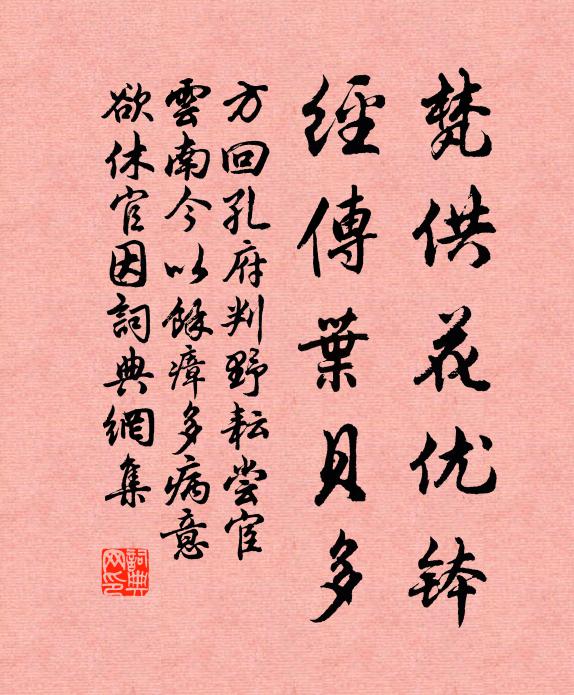 梵供花优钵
經傳葉貝多
方回孔府判野耘嘗官
雲南今以餘瘴多病意
欲休官因詞典網集
詞典
网印